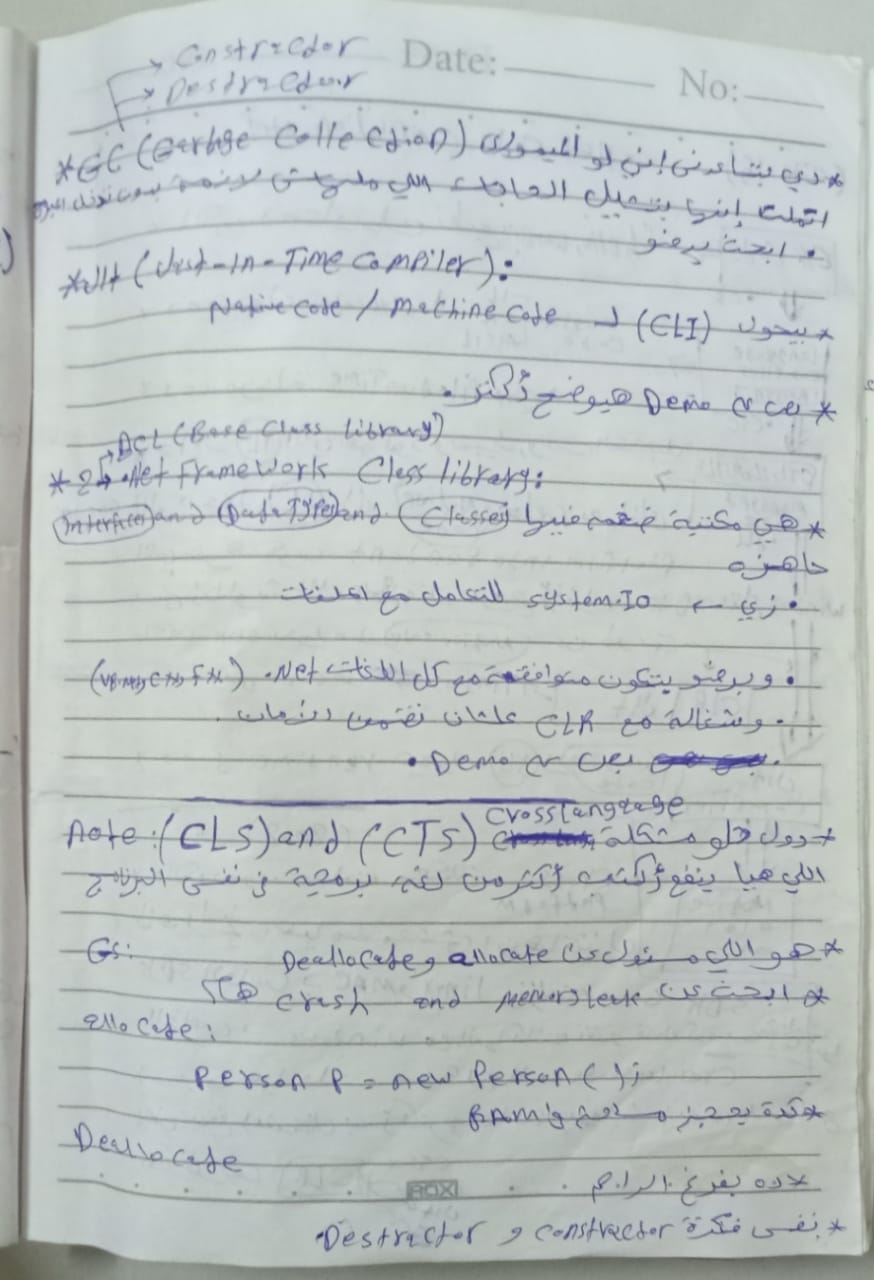 Constractor
Destractour
Date: No:
*GC (Garbage Collection) *دي بتساعدني إني لو الميموري
اتملت إنها بتشيل الحاجات اللي ملهاش لازمة
• ابحث برضو
*JIt (Just-In-Time Compiler):
*بيحول (CLI) لـ Native code / Machine Code
* بص ع Demo هيوضح أكتر.
BCL (Base Class Library)
*2 .Net Framework Class library:
*هي مكتبة ضخمه فيها (Classes) and (Data Types) and (Interfaces)
جاهزه
• زي ← System.IO للتعامل مع الملفات
• وبرضو بتكون متوافقة مع كل اللغات .Net (VB.Net, C#, F#)
• وشغالة مع CLR علشان تضمن الأمان.
بص ع Demo.
Cross Language
Note: (CLS) and (CTS) *دول حلو مشكلة
اللي هيا ينفع أكتب أكتر من لغة برمجة في نفس البرنامج
Gs: *هو اللي مسئول عن allocate و Deallocate
* ابحث عن Memory leak and Crash
allocate:
Person P = new Person();
*كدة بحجز مساحة في RAM
Deallocate
*ده بفرغ الرام.
BOX
*نفس فكرة constractor و Destractor.